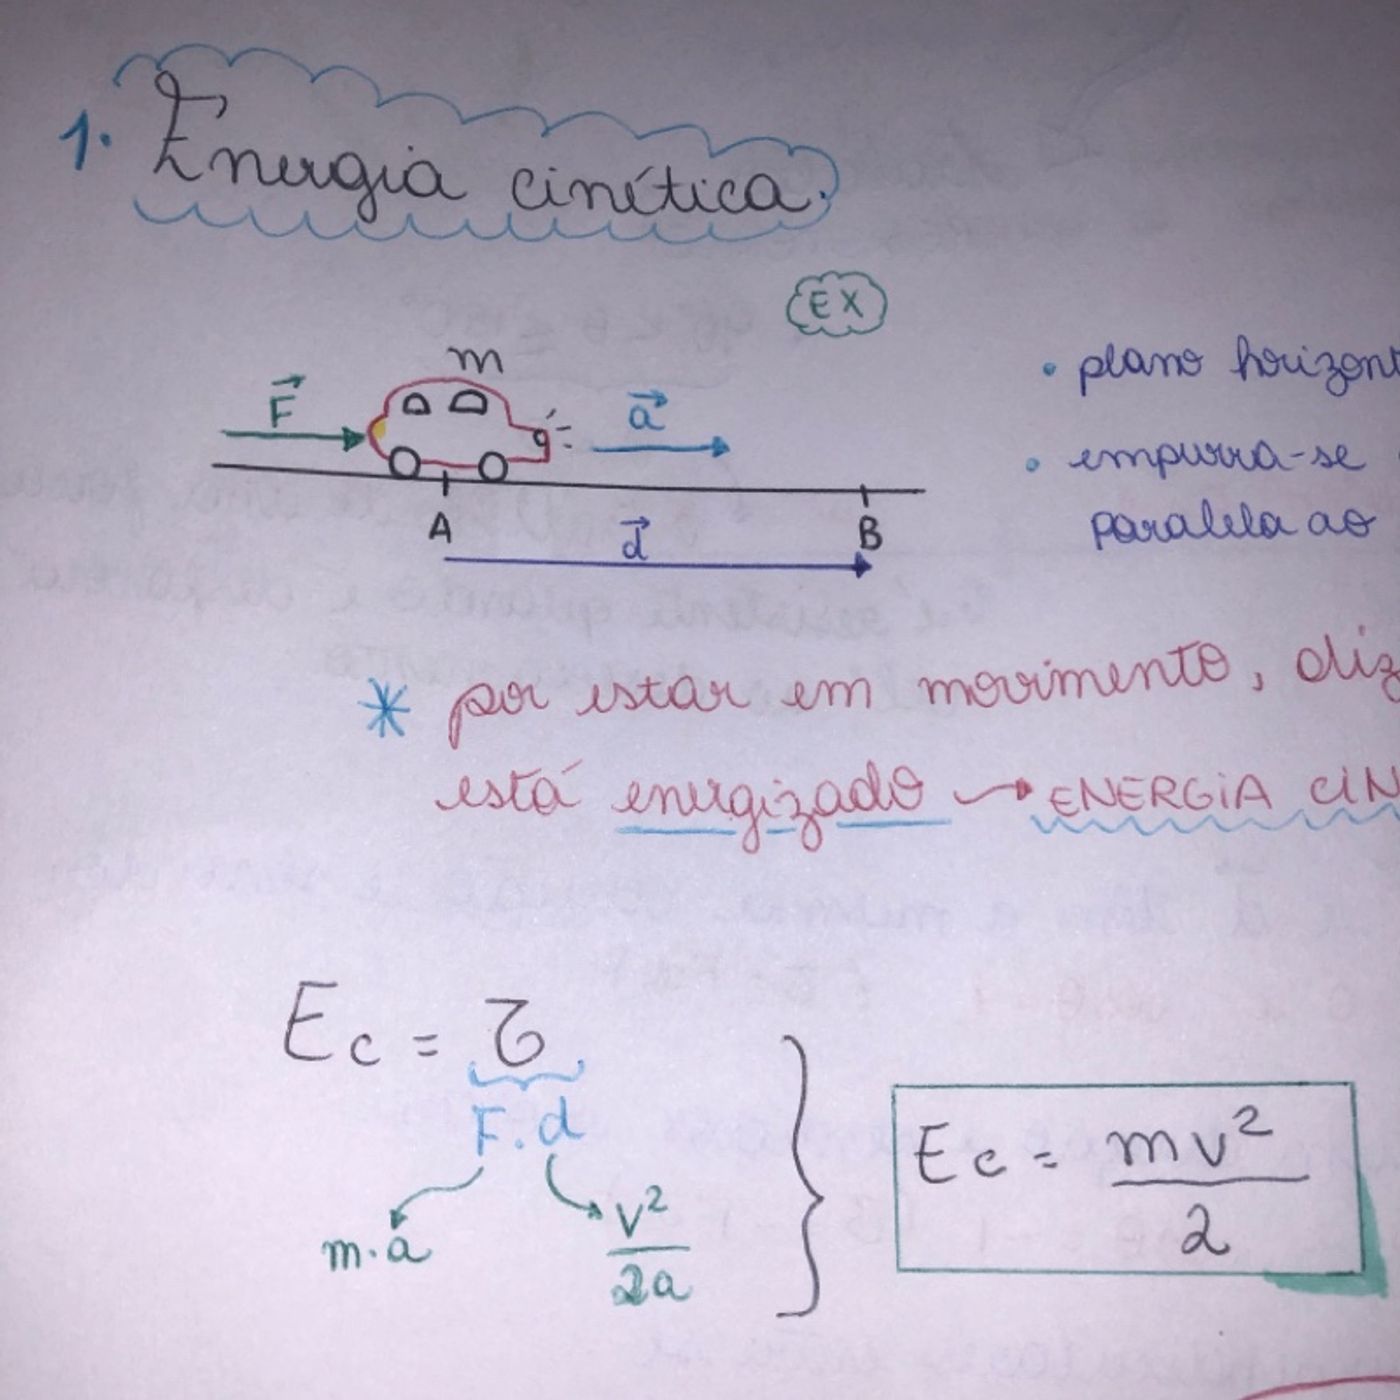 1. Energia cinética.
EX
m
F
a
A
d
B
• plano
• empurra-se
paralela ao
* por estar em movimento,
está energizado → ENERGIA
Ec = τ
F.d
m.a
v²/2a
Ec = mv²/2